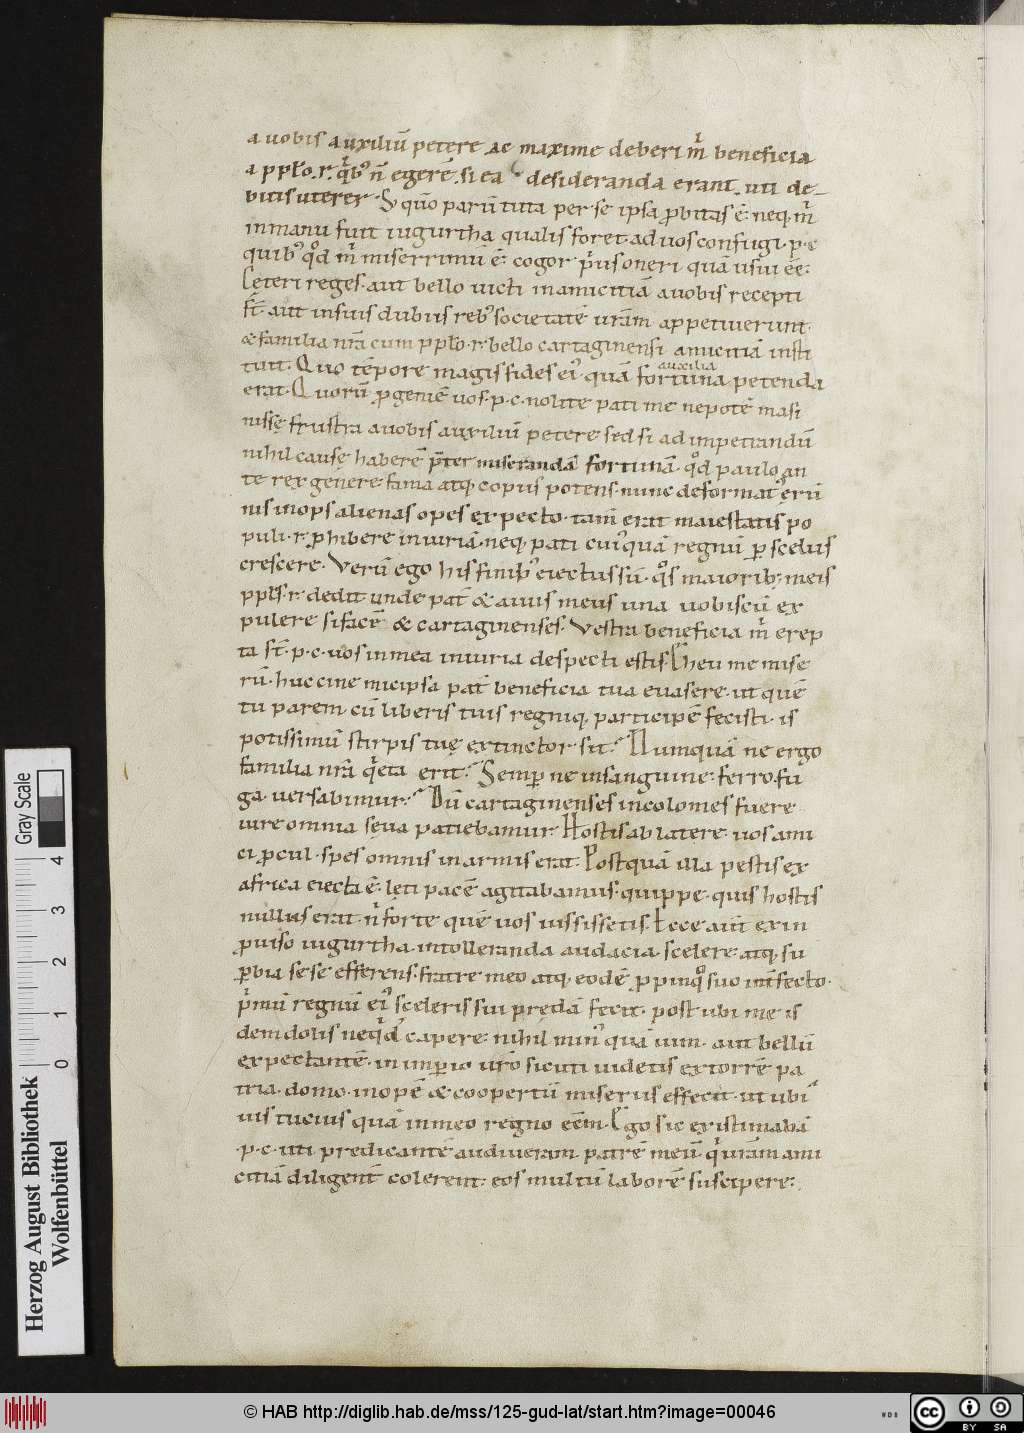 a uobis auxiliū petere ac maxime deberi m̄ beneficia
a pplo. r. qͥbꝰ n̄ egerē. si ea desideranda erant. uti de-
bitis uterer. S; qm̄o parū tuta per se ipsa ꝓbitas ē. neq; m̄
in manu fuit iugurtha qualis foret. ad uos confugi. p. c.
quibꝰ qđ m̄ miserrimū ē. cogor pͥus oneri quā usui eē.
Ceteri reges. aut bello uicti in amicitiā a uobis recepti
st̄. aut in suis dubiis rebꝰ societatē ur̄am appetiuerunt.
& familia nr̄a cum pplo. r. bello cartaginensi amicitiā insti
tuit. Quo tēpore magis fides eiꝰ quā fortuna petenda
auxilia
erat. Quorū ꝓgeniē uos. p. c. nolite pati me nepotē masi
nissę frustra a uobis auxiliū petere sed si ad impetrandū
nihil causę haberē p̄ter miserandā fortunā. qđ paulo an
te rex genere fama atq; copiis potens. nunc deformatꝰ erū
nis inops alienas opes expecto. tam̄ erat maiestatis po
puli. r. ꝓhibere iniuriā. neq; pati cuiꝰquā regnū ꝑ scelus
crescere. Verū ego his finibꝰ eiectus sū. qͦs maioribꝫ meis
ppl̄s. r. dedit unde pat̄ & auus meus una uobiscū ex
pulere sifacē & cartaginenses. Vestra beneficia m̄ erep
ta st̄. p. c. uos in mea iniuria despecti estis. Eheu me mise
rū. huccine micipsa pat̄ beneficia tua euasere. ut quē
tu parem. cū liberis tuis regniq; participē fecisti. is
potissimū stirpis tuę extinctor sit? Numquā ne ergo
familia nr̄a qͥeta erit? Semꝑ ne in sanguine. ferro. fu
ga. uersabimur? Dū cartaginenses incolomes fuere
iure omnia sęua patiebamur. Hostis ab latere. uos ami
ci ꝓcul. spes omnis in armis erat. Postquā illa pestis ex
africa eiecta ē. lęti pacē agitabamus. quippe. quis hostis
nullus erat. n̄ forte quē uos iussissetis. Ecce aut̄ ex in
ꝓuiso iugurtha. intolleranda audacia. scelere. atq; su
ꝑbia sese efferens. fratre meo atq; eodē ꝓpinqͦ suo int̄fecto.
pͥmū regnū eiꝰ sceleris sui prędā fecit. post ubi me is
dem dolis neqͥđ capere. nihil minꝰ quā uim. aut bellū
expectantē. in imꝑio ur̄o sicuti uidetis extorrē pa
tria. domo. inopē & coopertū miseriis effecit. ut ubi
uis tucius quā in meo regno eēm. Ego sic existimabā
. p. c. uti predicantē audiueram patrē meū. qͥ ur̄am ami
citiā diligent̄ colerent. eos multū laborē suscipere.
Gray Scale
0 1 2 3 4
Herzog August Bibliothek
Wolfenbüttel
© HAB http://diglib.hab.de/mss/125-gud-lat/start.htm?image=00046
WDB
cc BY SA